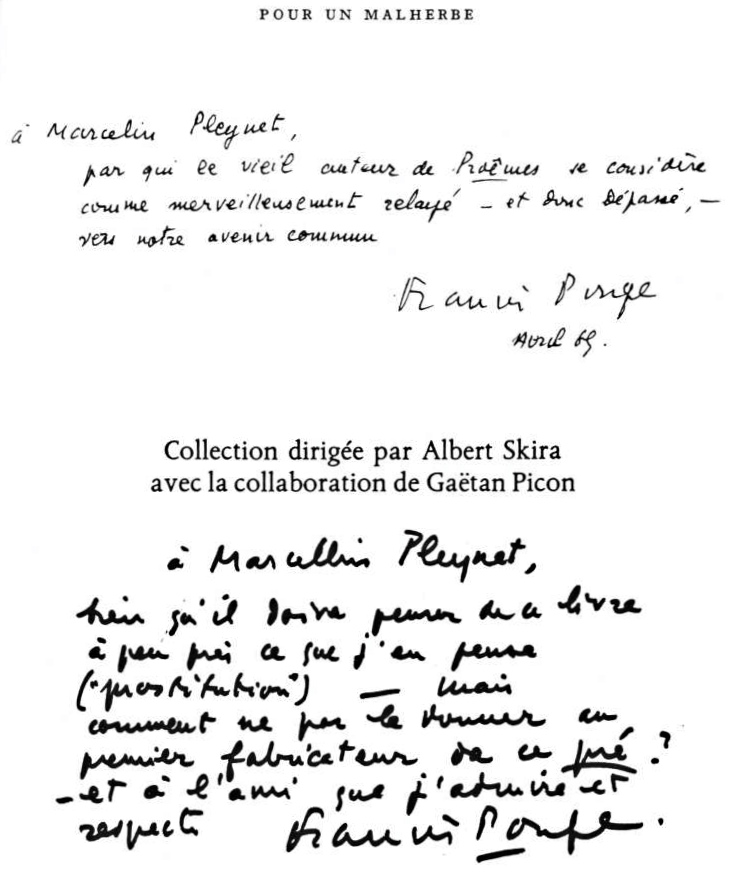 POUR UN MALHERBE
à Marcelin Pleynet,
par qui le vieil auteur de Proêmes se considère
comme merveilleusement relayé – et donc dépassé, –
vers notre avenir commun
Francis Ponge
Avril 65.
Collection dirigée par Albert Skira
avec la collaboration de Gaëtan Picon
à Marcellin Pleynet,
bien qu'il doive penser de ce livre
à peu près ce que j'en pense
("prostitution") — mais
comment ne pas le donner au
premier fabricateur de ce pré ?
– et à l'ami que j'admire et
respecte Francis Ponge.